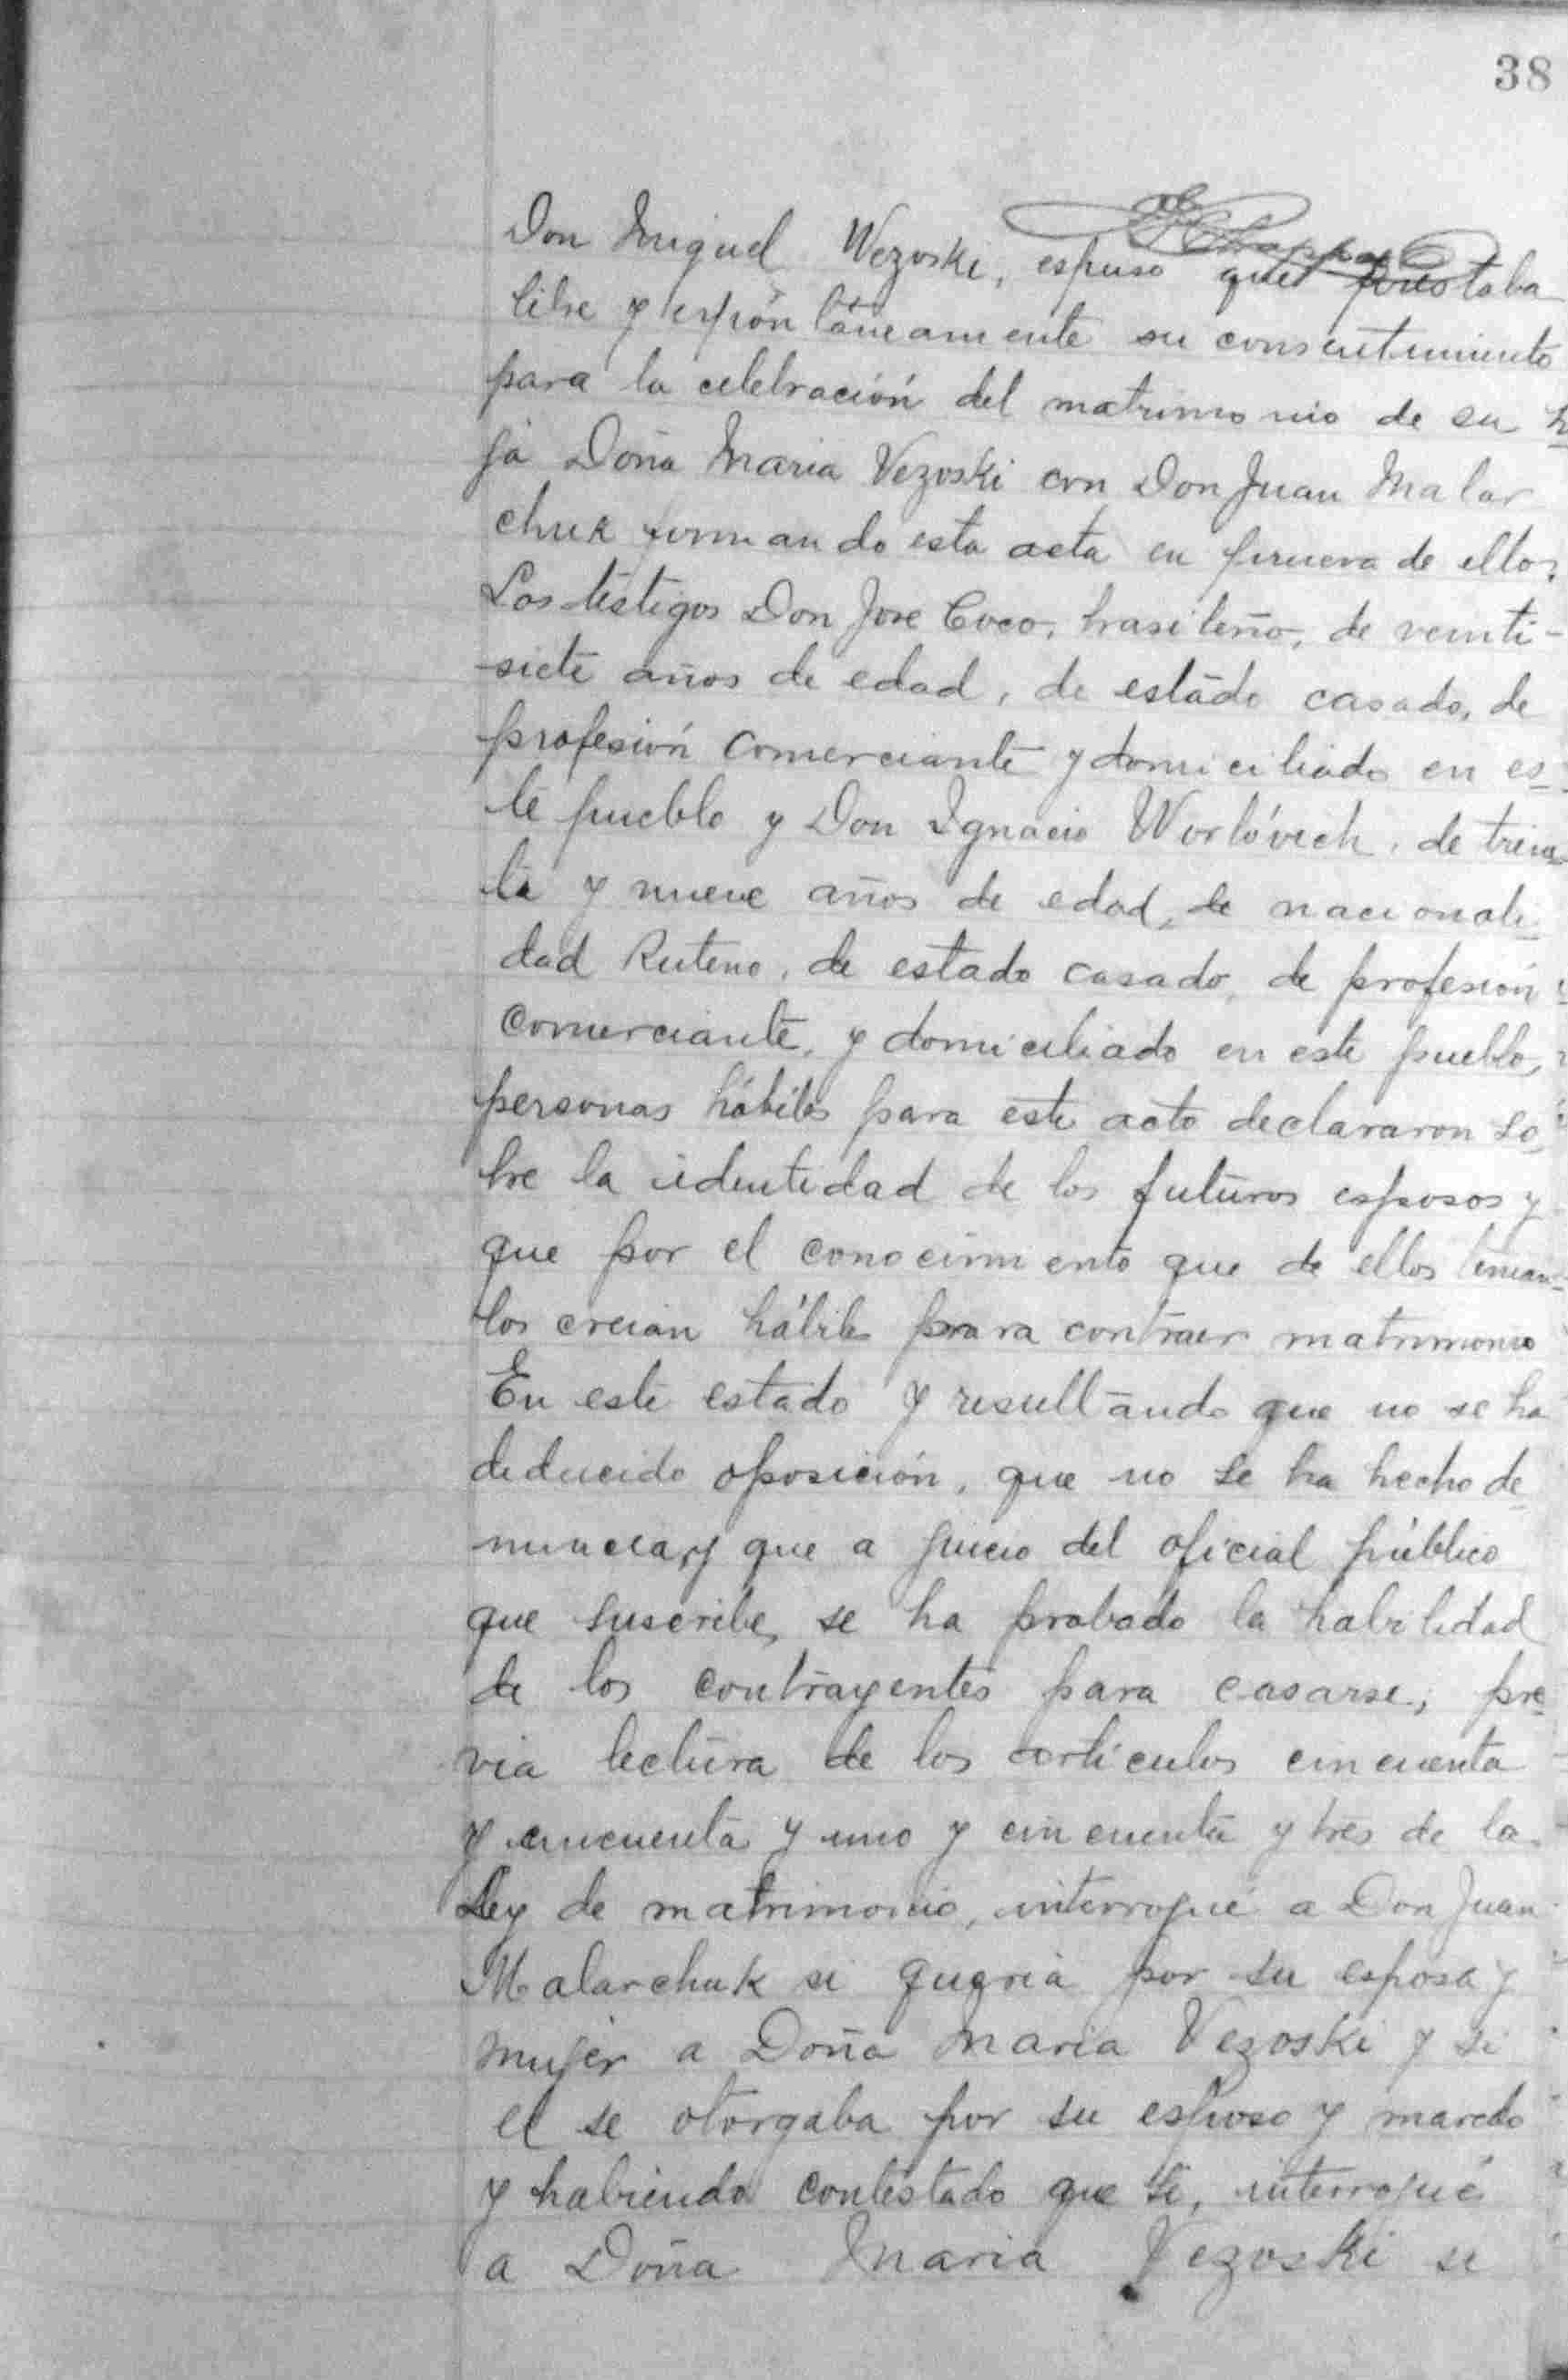 38
Don Miguel Wezoski, espuso que prestaba
libre y espontáneamente su consentimiento
para la celebración del matrimonio de su h
ja Doña Maria Vezoski con Don Juan Malar
chuk firmando esta acta en prueva de ello.
Los testigos Don Jose Coco, brasileño, de veinti-
siete años de edad, de estado casado, de
profesión comerciante y domiciliado en es-
te pueblo y Don Ignacio Worlóvech, de trein
ta y nueve años de edad, de nacionali-
dad Ruteno, de estado casado, de profesión
comerciante, y domiciliado en este pueblo,
personas hábiles para este acto declararon so
bre la identidad de los futuros esposos y
que por el conocimiento que de ellos tenian
los creian hábiles para contraer matrimonio
En este estado y resultando que no se ha
deducido oposición, que no se ha hecho de
nuncia, y que a juicio del oficial público
que suscribe, se ha probado la habilidad
de los contrayentes para casarse, pre
via lectura de los articulos cincuenta
y cincuenta y uno y cincuenta y tres de la
Ley de matrimonio, interrogué a Don Juan
Malarchuk si queria por su esposa y
mujer a Doña Maria Vezoski y si
el se otorgaba por su esposo y marido
y habiendo contestado que si, interrogué
a Doña Maria Vezoski si